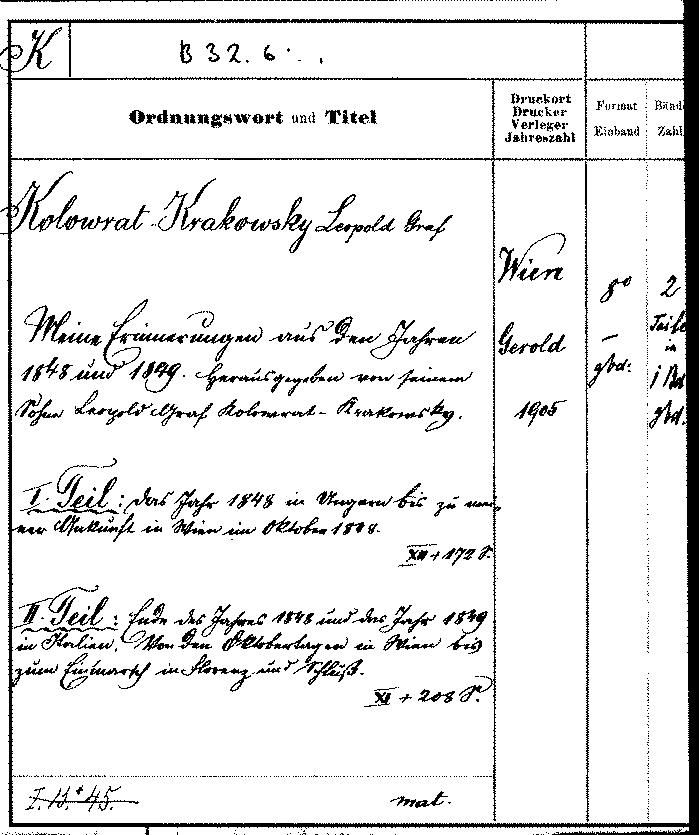 K
B 32. 6.
Ordnungswort und Titel
Druckort
Drucker
Verleger
Jahreszahl
Format
Einband
Bände
Zahl
Kolowrat-Krakowsky Leopold Graf
Wien
8°
2
Teile
in
1 Bd
gbd.
Meine Erinnerungen aus den Jahren
1848 und 1849. Herausgegeben von seinem
Sohne Leopold Graf Kolowrat-Krakowsky.
Gerold
1905
–
gbd.
I. Teil: Das Jahr 1848 in Ungarn bis zu mei-
ner Ankunft in Wien im Oktober 1848.
XII + 172 S.
II. Teil: Ende des Jahres 1848 und das Jahr 1849
in Italien. Von den Oktobertagen in Wien bis
zum Einmarsch in Florenz und Schluß.
XI + 208 S.
mat.